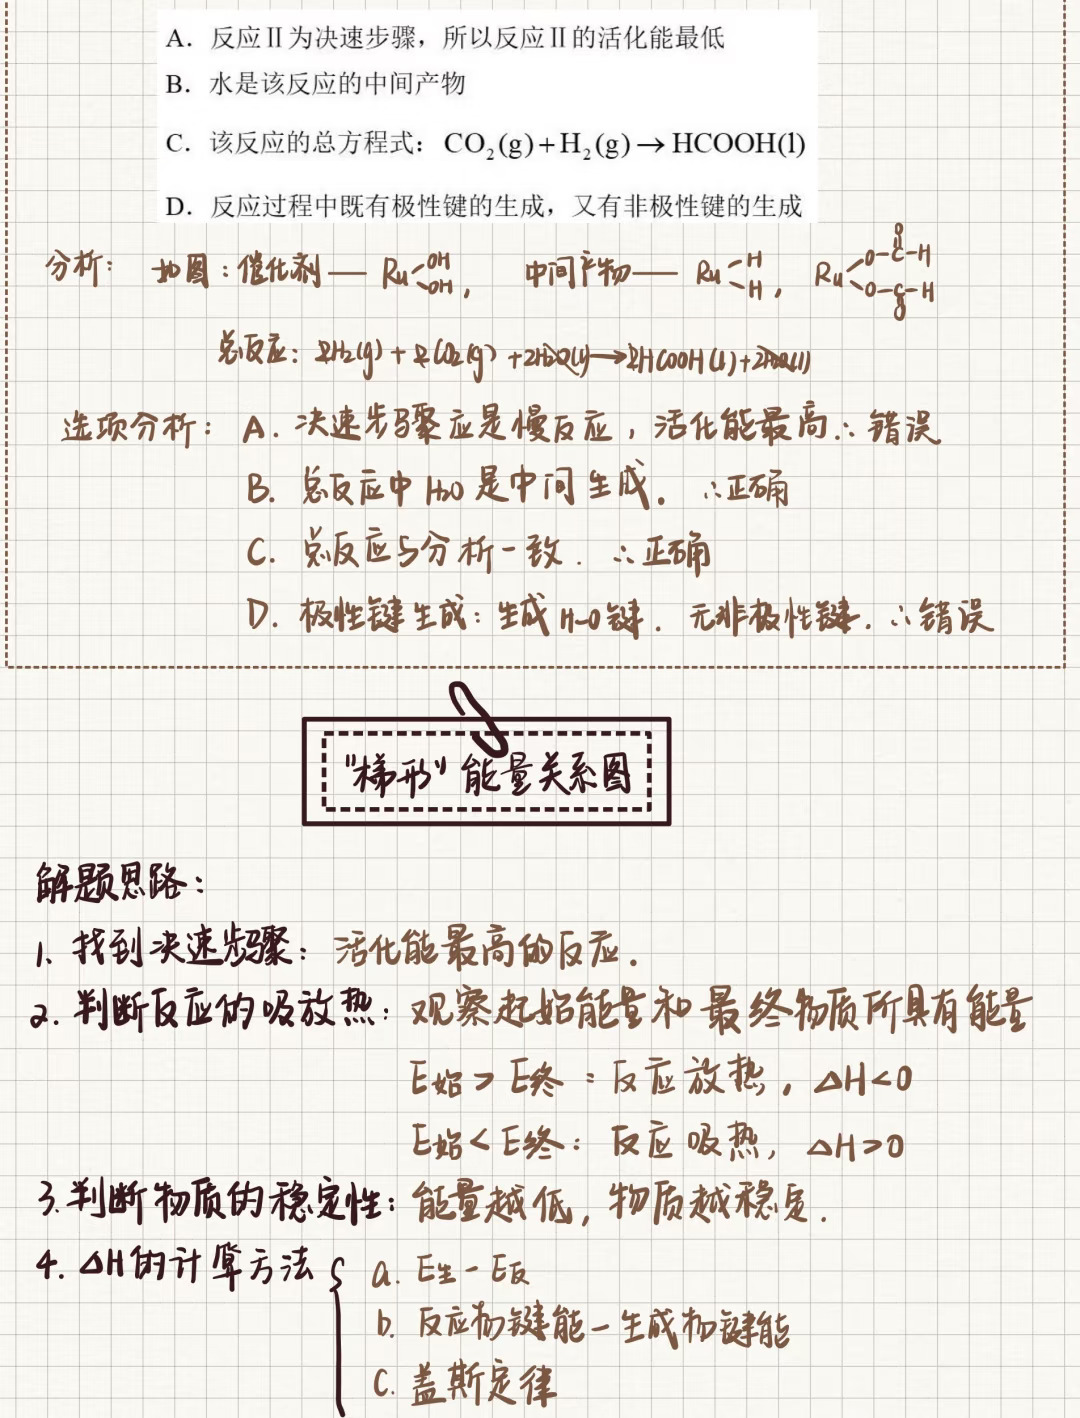 A. 反应Ⅱ为决速步骤，所以反应Ⅱ的活化能最低
B. 水是该反应的中间产物
C. 该反应的总方程式：CO₂(g)+H₂(g)→HCOOH(l)
D. 反应过程中既有极性键的生成，又有非极性键的生成
分析： 如图：催化剂—— Ru OH OH， 中间产物—— Ru H H， Ru O-C-H O O-C-H O
总反应：2H₂(g)+2CO₂(g)+2H₂O(l)→2HCOOH(l)+2H₂O(l)
选项分析： A. 决速步骤应是慢反应，活化能最高∴错误
B. 总反应中H₂O是中间生成. ∴正确
C. 总反应与分析一致. ∴正确
D. 极性键生成：生成H-O键. 无非极性键. ∴错误
"梯形"能量关系图
解题思路：
1、找到决速步骤：活化能最高的反应.
2. 判断反应的吸放热：观察起始能量和最终物质所具有能量
E始>E终：反应放热，△H<0
E始<E终：反应吸热，△H>0
3.判断物质的稳定性：能量越低，物质越稳定.
4. △H的计算方法 { a. E生-E反
b. 反应物键能-生成物键能
C. 盖斯定律